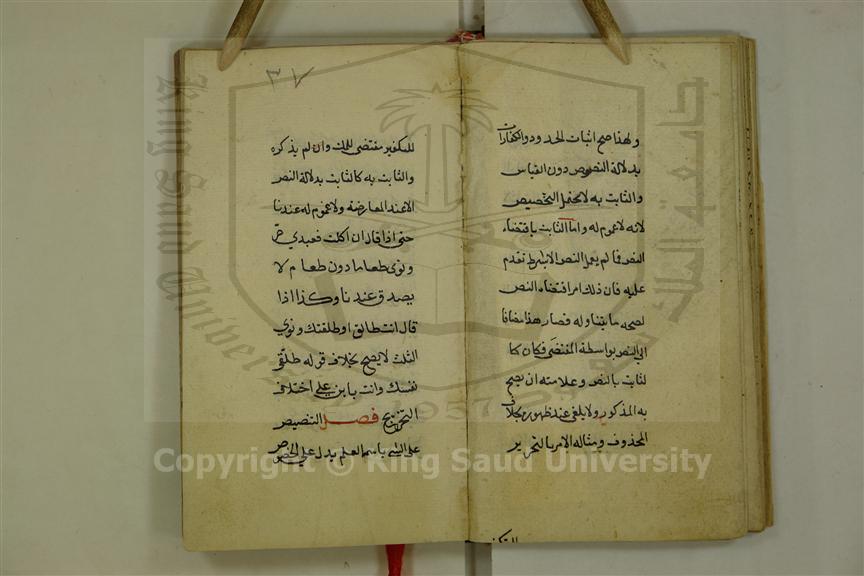 ولهذا صح اثبات الحدود والكفارات
بدلالة النصوص دون القياس
والثابت به لا يحتمل التخصيص
لانه لا عموم له واما الثابت باقتضاء
النص فما لم يعمل النص الا بشرط تقدم
عليه فان ذلك امر اقتضاه النص
لصحة ما يتناوله فصار هذا مضافا
الى النص بواسطة المقتضى فكان كا
لثابت بالنص وعلامته ان يصح
به المذكور ولا يلغى عند ظهوره بخلاف
المحذوف ومثاله الامر بالتحرير
٣٧
للتكفير مقتضى للملك وان لم يذكره
والثابت به كالثابت بدلالة النص
الا عند المعارضة ولا عموم له عندنا
حتى اذا قال ان اكلت فعبدي حر
ونوى طعاما دون طعام لا
يصدق عندنا وكذا اذا
قال انت طالق او طلقتك ونوى
الثلث لا يصح بخلاف قوله طلقي
نفسك وانت باين على اختلاف
التخريج فصل التنصيص
على الشي باسم العلم يدل على الخصوص
Copyright © King Saud University
جامعة الملك سعود
King Saud University
1957